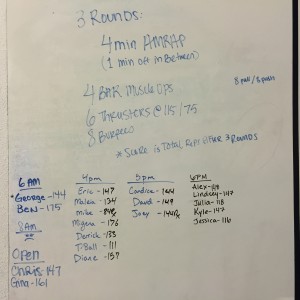 3 Rounds:
4 min AMRAP
(1 min off in Between)
4 BAR Muscle Ups
6 Thrusters @ 115/75
8 Burpees
8 pull / 8 push
* Score is Total Reps After 3 Rounds
6 AM
George - 144
Ben - 175
8am
Open
Chris 147
Gina - 161
4pm
Eric - 147
Malea - 134
Mike -
Miguel - 176
Derrick - 133
T-Ball - 111
Diane - 137
5pm
Candice - 144
David - 149
Joey -
6PM
Alex - 
Lindsey - 147
Julia - 118
Kyle - 147
Jessica - 116